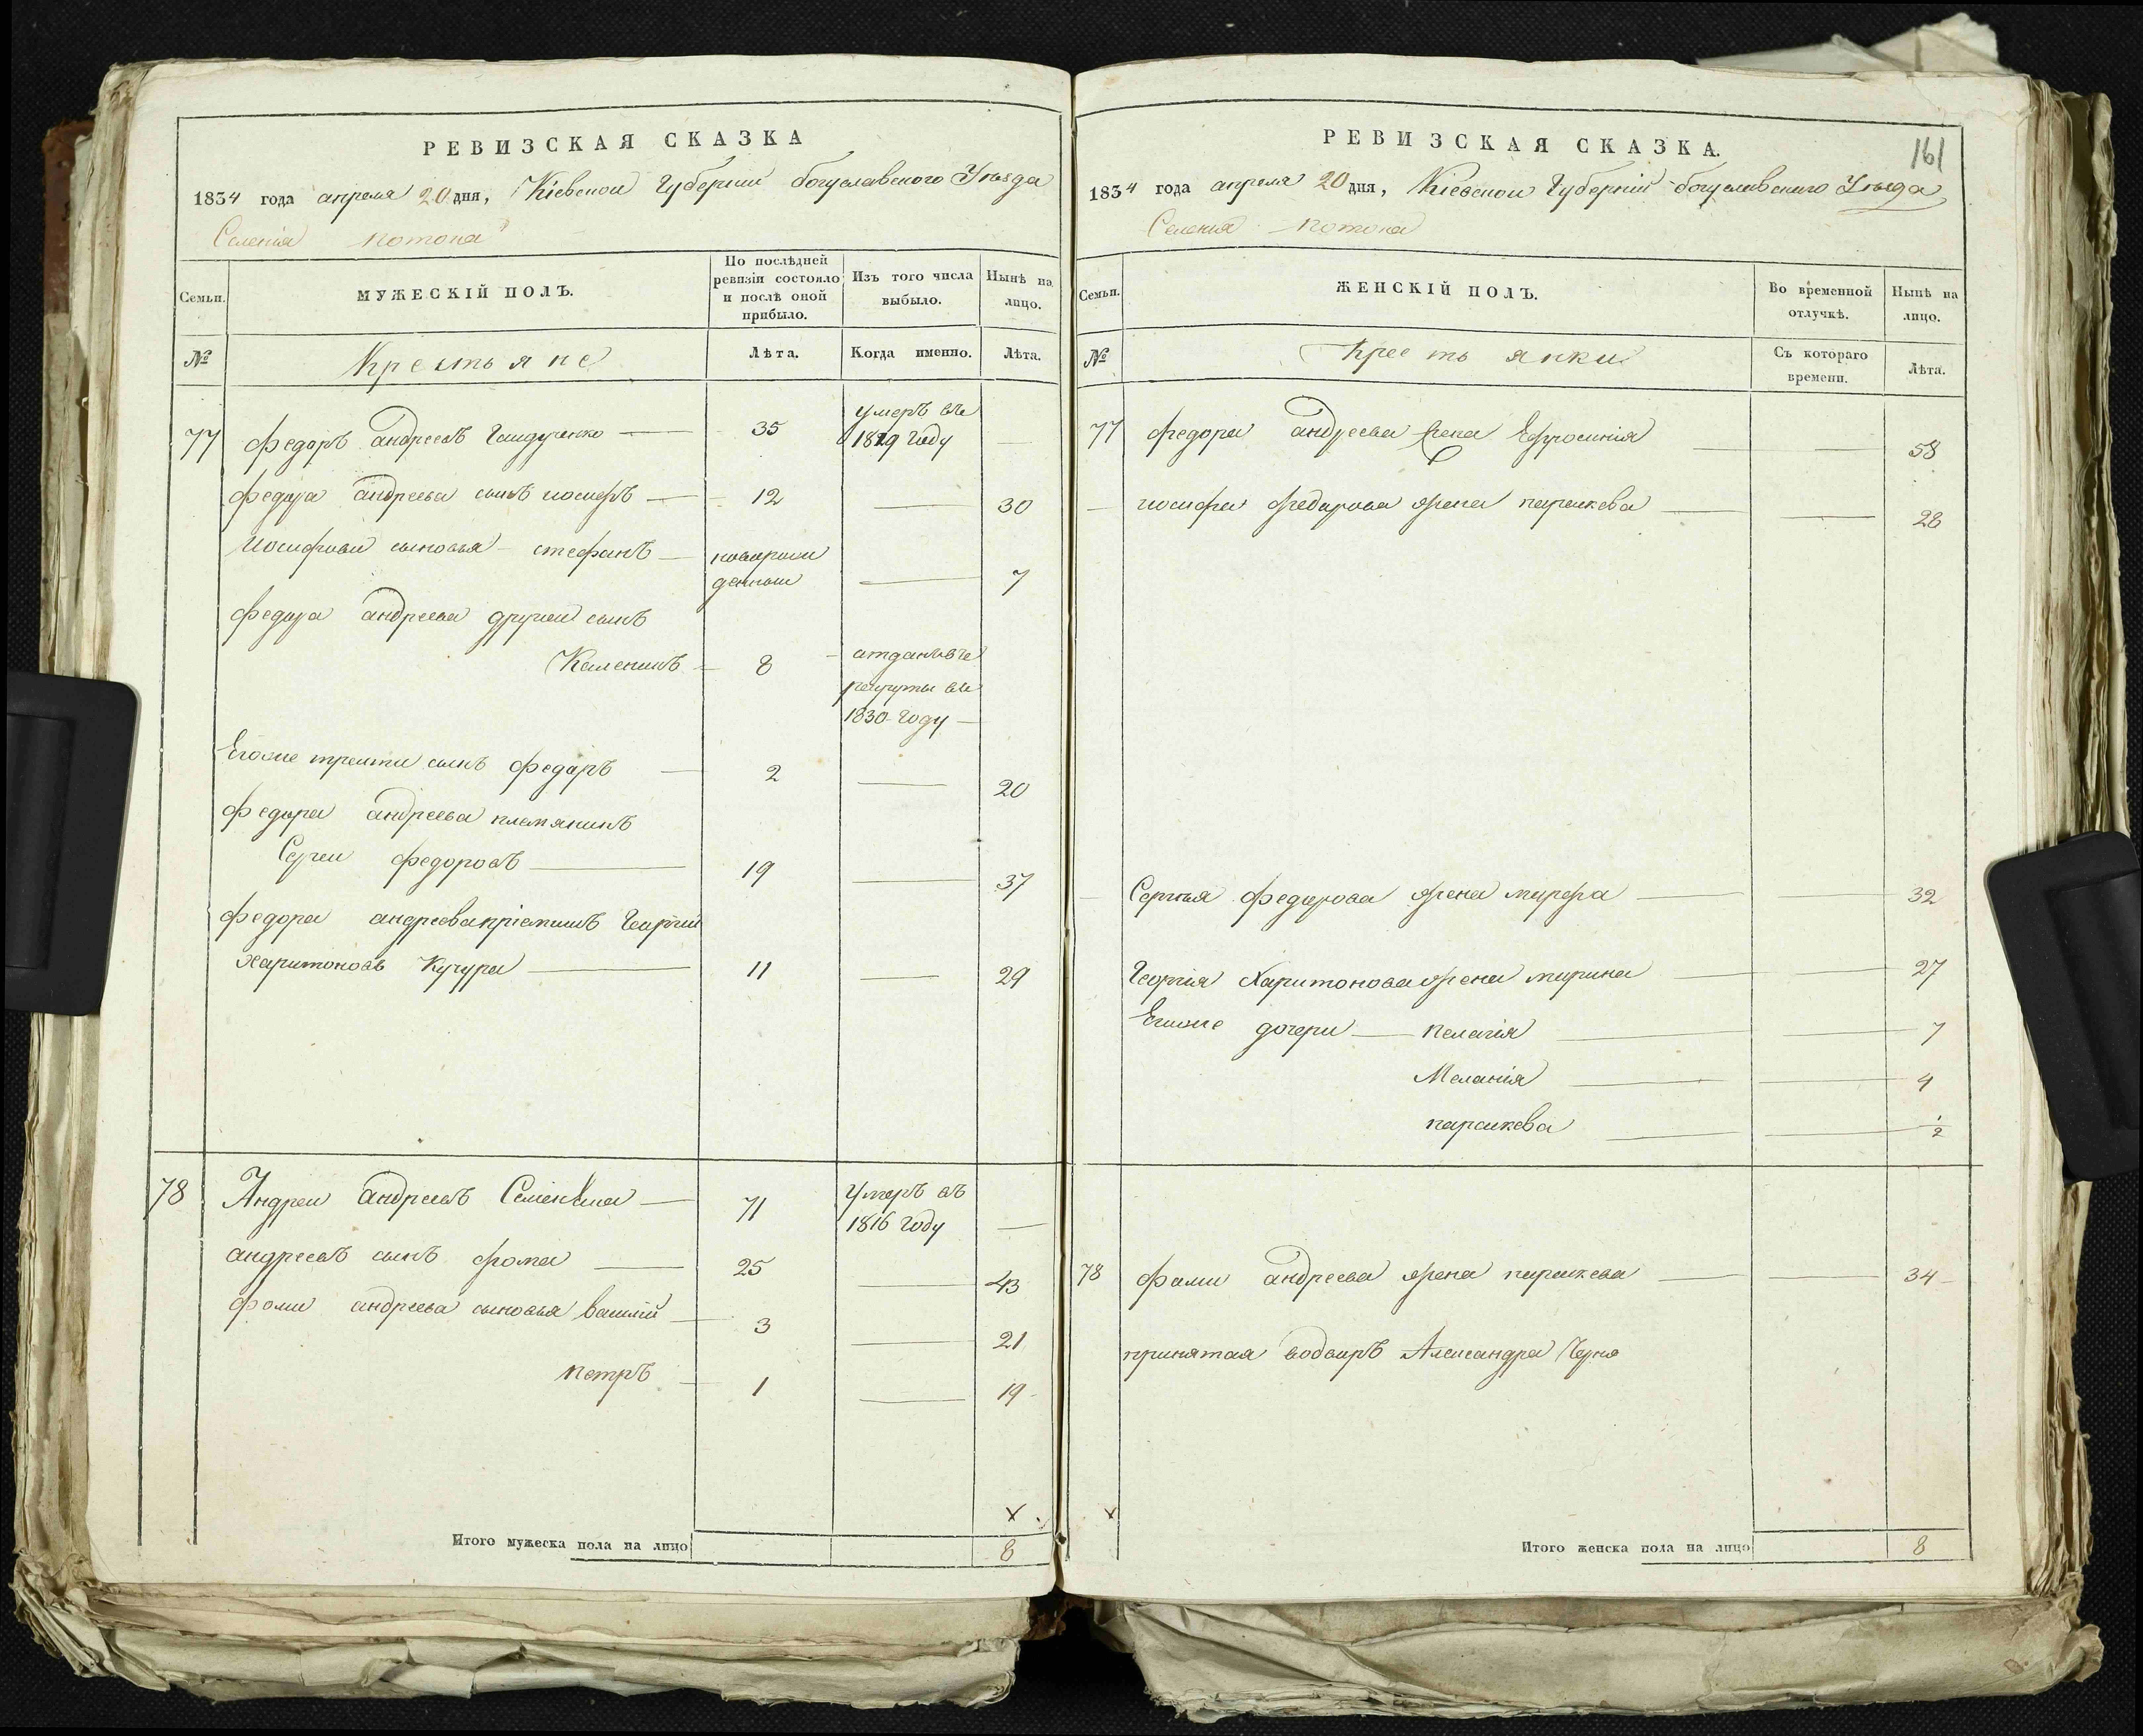 РЕВИЗСКАЯ СКАЗКА
1834 года апреля 20 дня, Кіевской Губерніи богуславского Уезда
Селенія потока
Семьи.
МУЖЕСКІЙ ПОЛЪ.
По послѣдней ревизіи состояло и послѣ оной прибыло.
Изъ того числа выбыло.
Нынѣ на лицо.
№
Крестьяне
Лѣта.
Когда именно.
Лѣта.
77 федоръ андреевъ Гайдученко — 35 умеръ въ
1829 году —
федора андреева сынъ иосифъ — 12 — 30
Иосифови сыновья – стефанъ — новорож
денны — 7
федора андреева другой сынъ
Каленикъ — 8 — отданъ въ
рекруты въ
1830 году —
Егоже трети сынъ федоръ — 2 — 20
федора андреева племяникъ
Сергеи федоровъ — 19 — 37
федора андреева пріемишъ Георгій
харитоновъ Кучура — 11 — 29
78 Андреи андреевъ — 71 Умеръ въ
1816 году —
андреевъ сынъ фома — 25 — 43
фоми андреева сыновья василій — 3 — 21
петръ — 1 — 19
Итого мужеска пола на лицо 8
РЕВИЗСКАЯ СКАЗКА.
161
1834 года апреля 20 дня, Кіевской Губерніи богуславского Уезда
Селенія потока
Семьи.
ЖЕНСКІЙ ПОЛЪ.
Во временной отлучкѣ.
Нынѣ на лицо.
№
Крестьянки
Съ котораго времени.
Лѣта.
77 федора андреева жена Ефросинія — — 58
иосифа федорова жена параскева — — 28
Сергия федорова жена марфа — — 32
Георгія Харитонова жена марина — — 27
Егоже дочери — пелагія — — 7
Меланія — — 4
параскева — — 1/2
78 фоми андреева жена параскева — — 34
принятая Александра
Итого женска пола на лицо 8